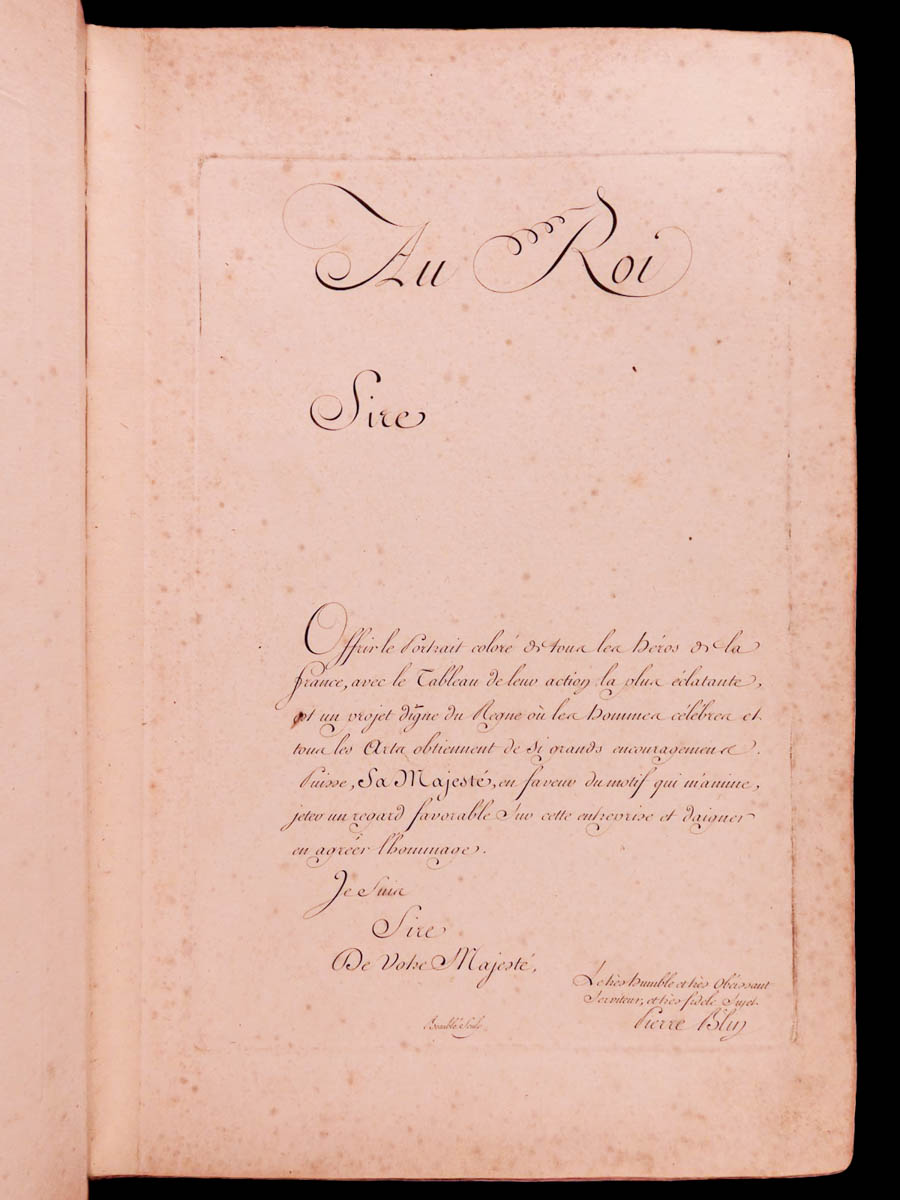 Au Roi
Sire
Offrir le Portrait coloré de tous les héros de la
france, avec le Tableau de leur action la plus éclatante,
est un projet digne du Regne où les hommes célébres et
tous les Arts obtiennent de si grands encouragemens.
Puisse, Sa Majesté, en faveur du motif qui m'anime,
jeter un regard favorable sur cette entreprise et daigner
en agréer l'hommage.
Je Suis
Sire
De Votre Majesté,
Le très humble et très Obéissant
Serviteur, et très fidele Sujet.
Pierre Blin
Beaublé Sculp.